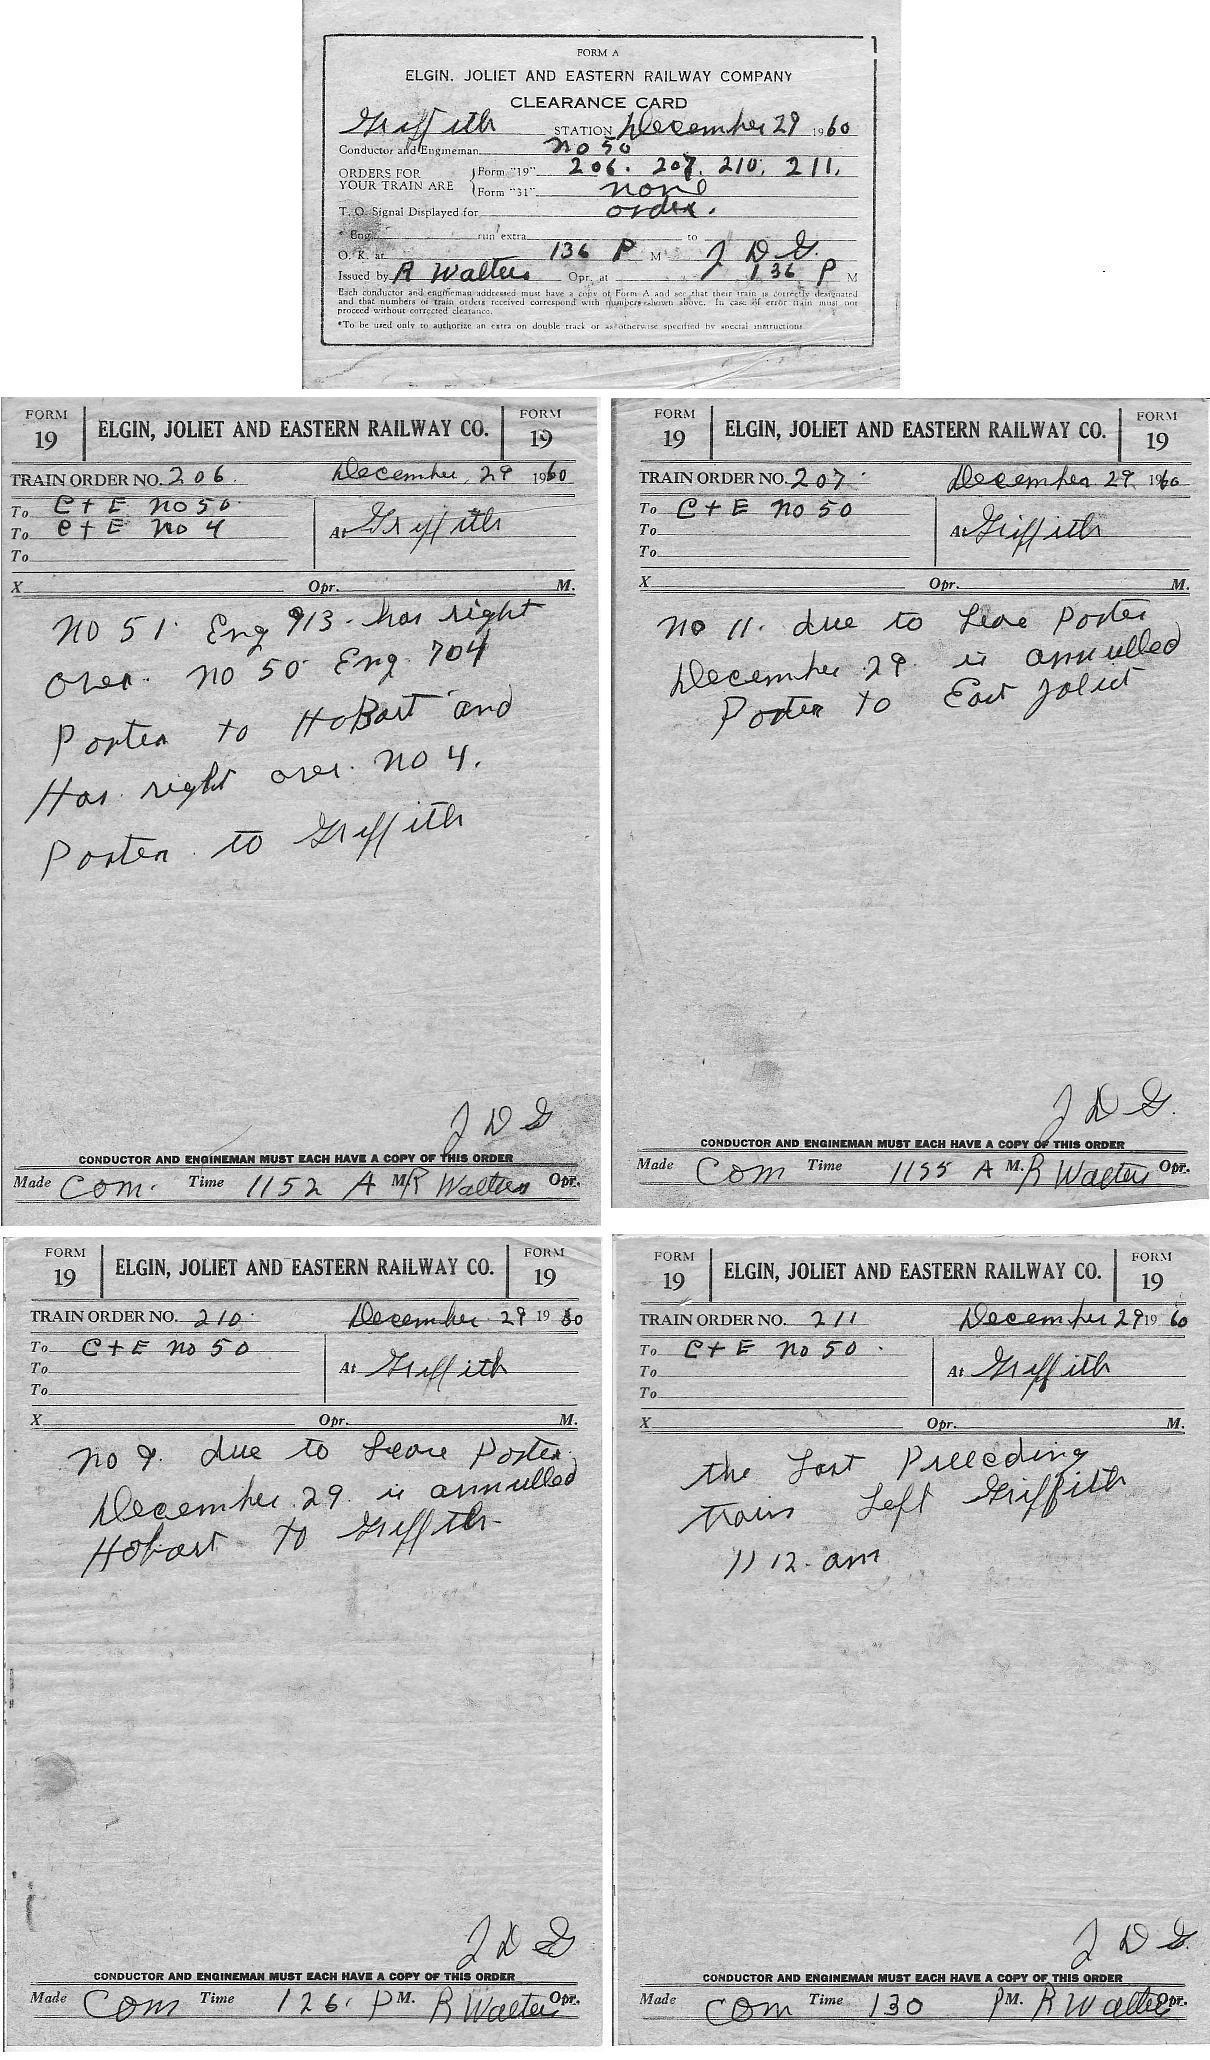 FORM A
ELGIN, JOLIET AND EASTERN RAILWAY COMPANY
CLEARANCE CARD
Griffith STATION December 29 1960
Conductor and Engineman no 50
ORDERS FOR YOUR TRAIN ARE Form "19" 206. 207. 210. 211.
Form "31" none
T. O. Signal Displayed for order.
* Eng. run extra to
O. K. at 136 P M J D G.
Issued by R Walters Opr. at 136 P M
Each conductor and engineman addressed must have a copy of Form A and see that their train is correctly designated
and that numbers of train orders received correspond with numbers shown above. In case of error train must not
proceed without corrected clearance.
*To be used only to authorize an extra on double track or as otherwise specified by special instructions
FORM 19 ELGIN, JOLIET AND EASTERN RAILWAY CO. FORM 19
TRAIN ORDER NO. 206. December, 29 1960
To C+E no 50
To C+E no 4 At Griffith
To
X Opr. M.
no 51. Eng 913. has right
over. no 50 Eng. 704
Porter to Hobart and
Has right over. no 4.
Porter to Griffith
J D G
CONDUCTOR AND ENGINEMAN MUST EACH HAVE A COPY OF THIS ORDER
Made Com. Time 1152 A M. R Walters Opr.
FORM 19 ELGIN, JOLIET AND EASTERN RAILWAY CO. FORM 19
TRAIN ORDER NO. 207. December 29 1960
To C+E no 50
To At Griffith
To
X Opr. M.
no 11. due to Leave Porter
December 29. is annulled
Porter to East Joliet
J D G.
CONDUCTOR AND ENGINEMAN MUST EACH HAVE A COPY OF THIS ORDER
Made Com Time 1155 A M. R Walters Opr.
FORM 19 ELGIN, JOLIET AND EASTERN RAILWAY CO. FORM 19
TRAIN ORDER NO. 210. December 29 1960
To C+E no 50
To At Griffith
To
X Opr. M.
no 9. due to Leave Porter
December 29. is annulled
Hobart to Griffith
J D G
CONDUCTOR AND ENGINEMAN MUST EACH HAVE A COPY OF THIS ORDER
Made Com Time 126. P M. R Walters Opr.
FORM 19 ELGIN, JOLIET AND EASTERN RAILWAY CO. FORM 19
TRAIN ORDER NO. 211 December 29 1960
To C+E no 50.
To At Griffith
To
X Opr. M.
the Last Preceding
train Left Griffith
11 12. am
J D G.
CONDUCTOR AND ENGINEMAN MUST EACH HAVE A COPY OF THIS ORDER
Made Com Time 130 P M. R Walters Opr.